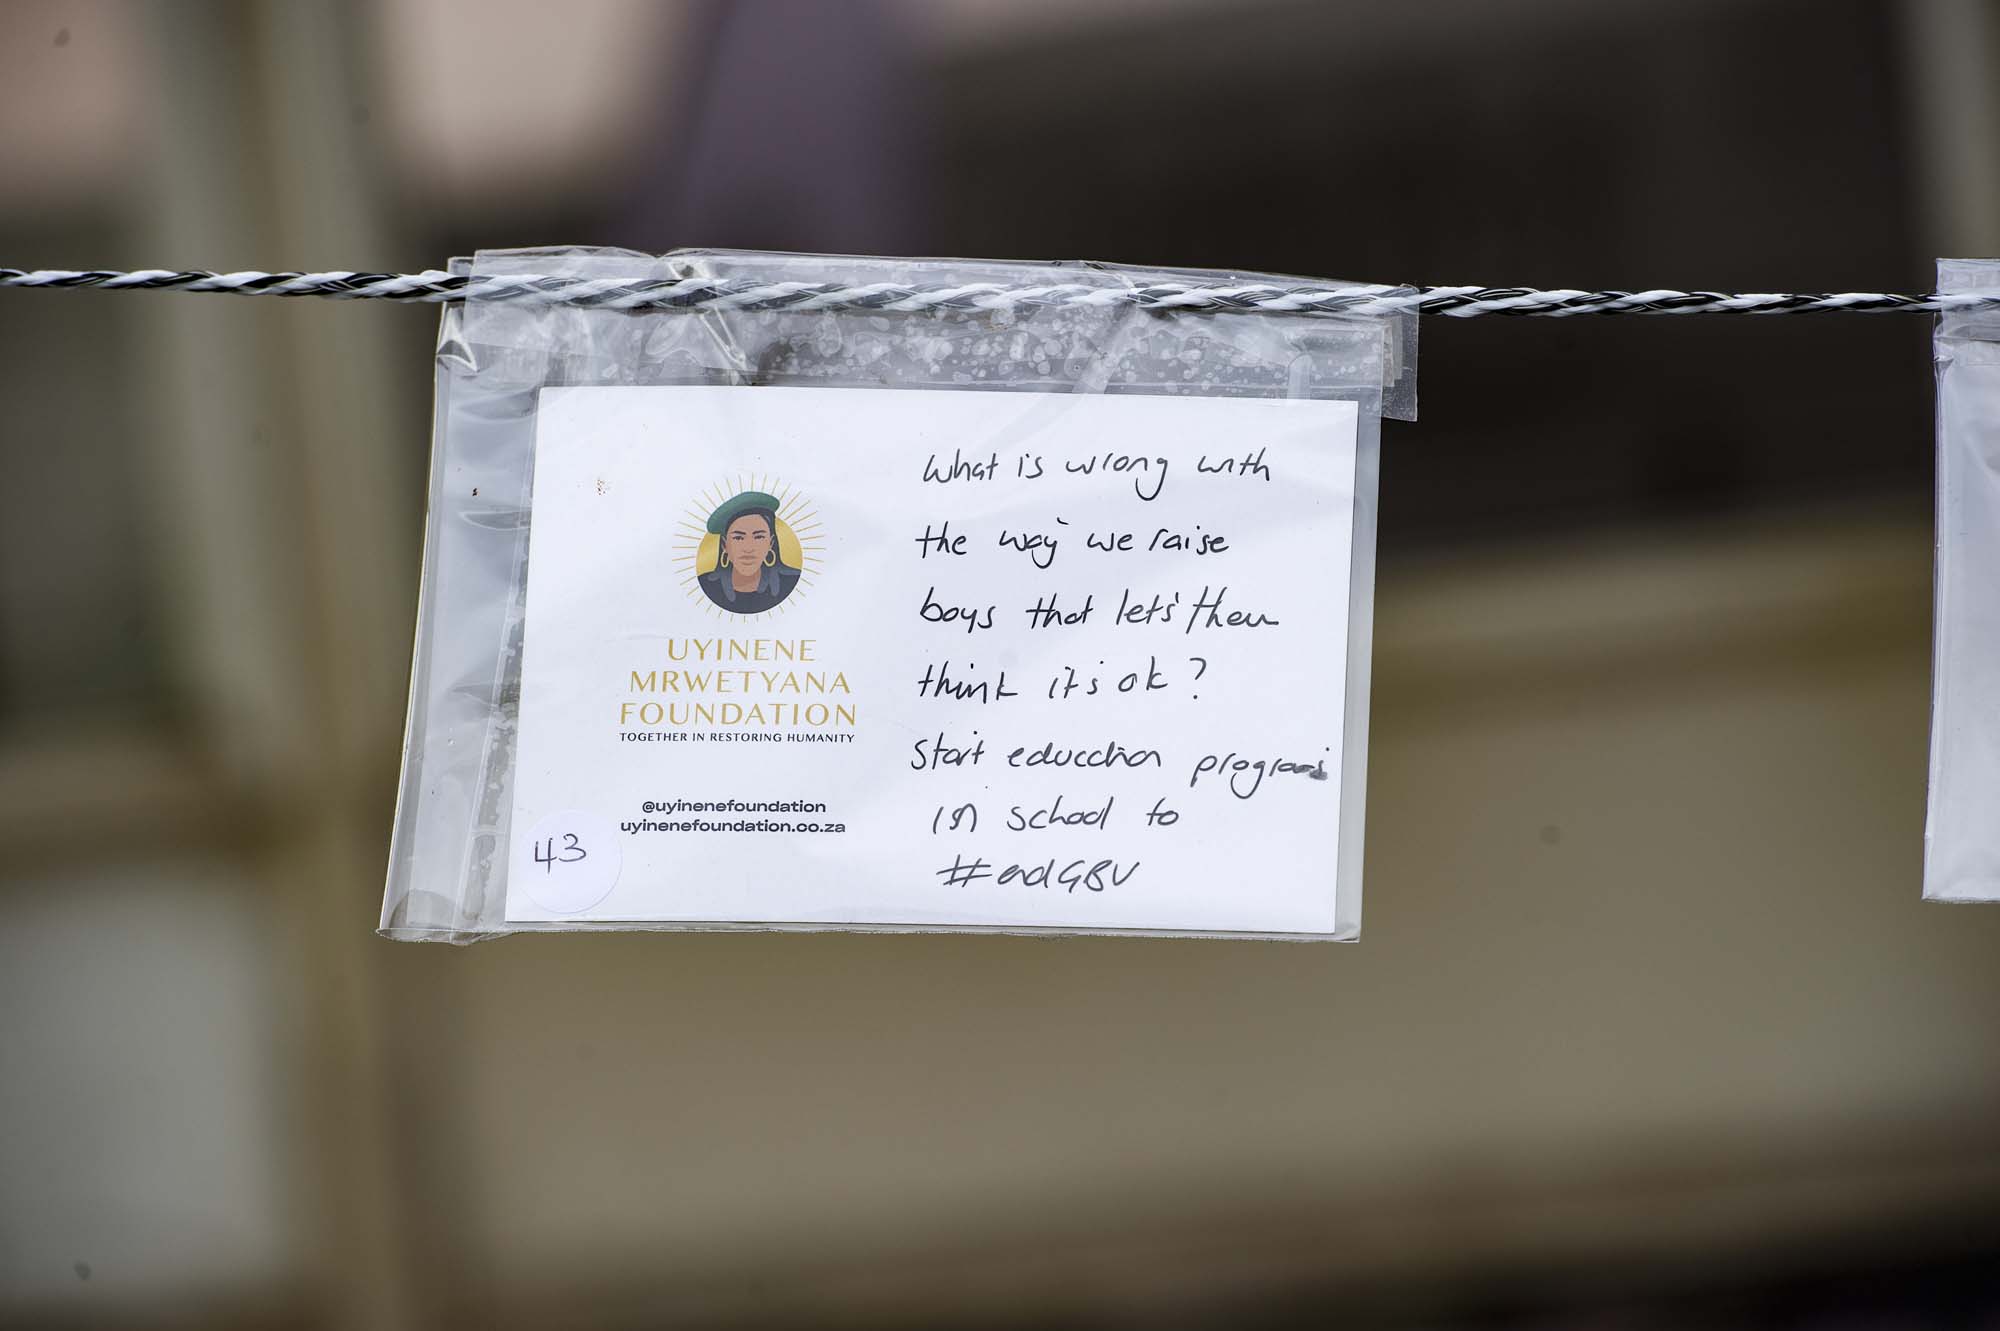 UYINENE
MRWETYANA
FOUNDATION
TOGETHER IN RESTORING HUMANITY
@uyinenefoundation
uyinenefoundation.co.za
43
What is wrong with
the way we raise
boys that let's them
think it's ok?
Start education programs
in school to
#endGBV